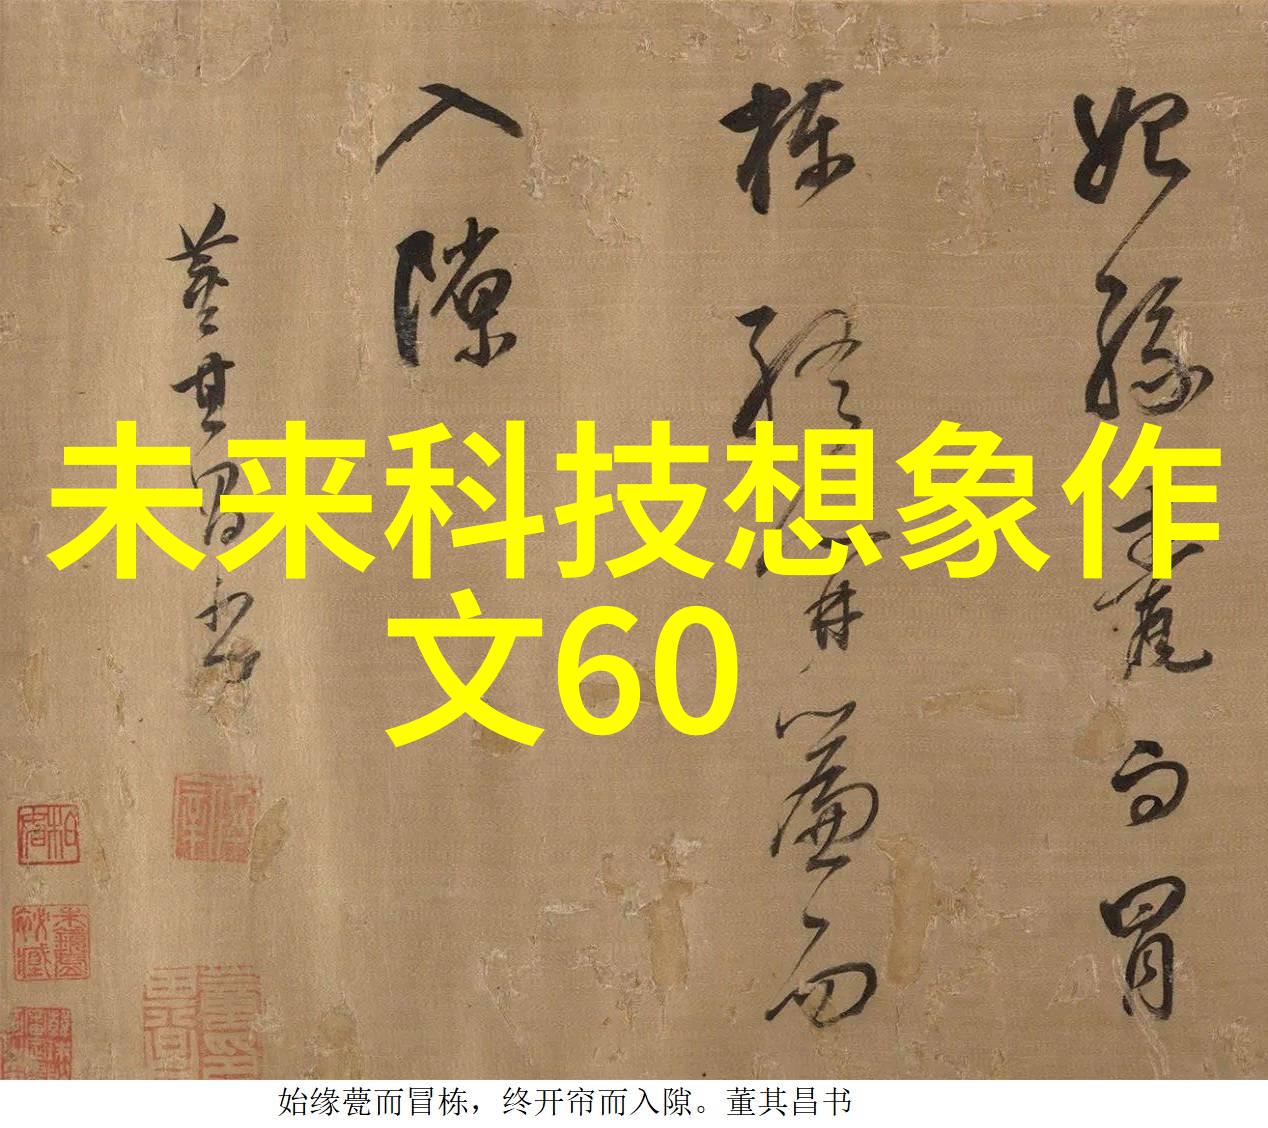 始缘甍而冒
栋终开帘而
入隙
董其昌书
未来科技想象作
文60
始缘甍而冒栋，终开帘而入隙。董其昌书